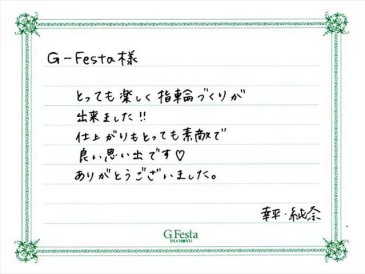 G-Festa様
とっても楽しく指輪づくりが
出来ました!!
仕上がりもとっても素敵で
良い思い出です♡
ありがとうございました。
幸平・純奈
G.Festa
DIAMOND